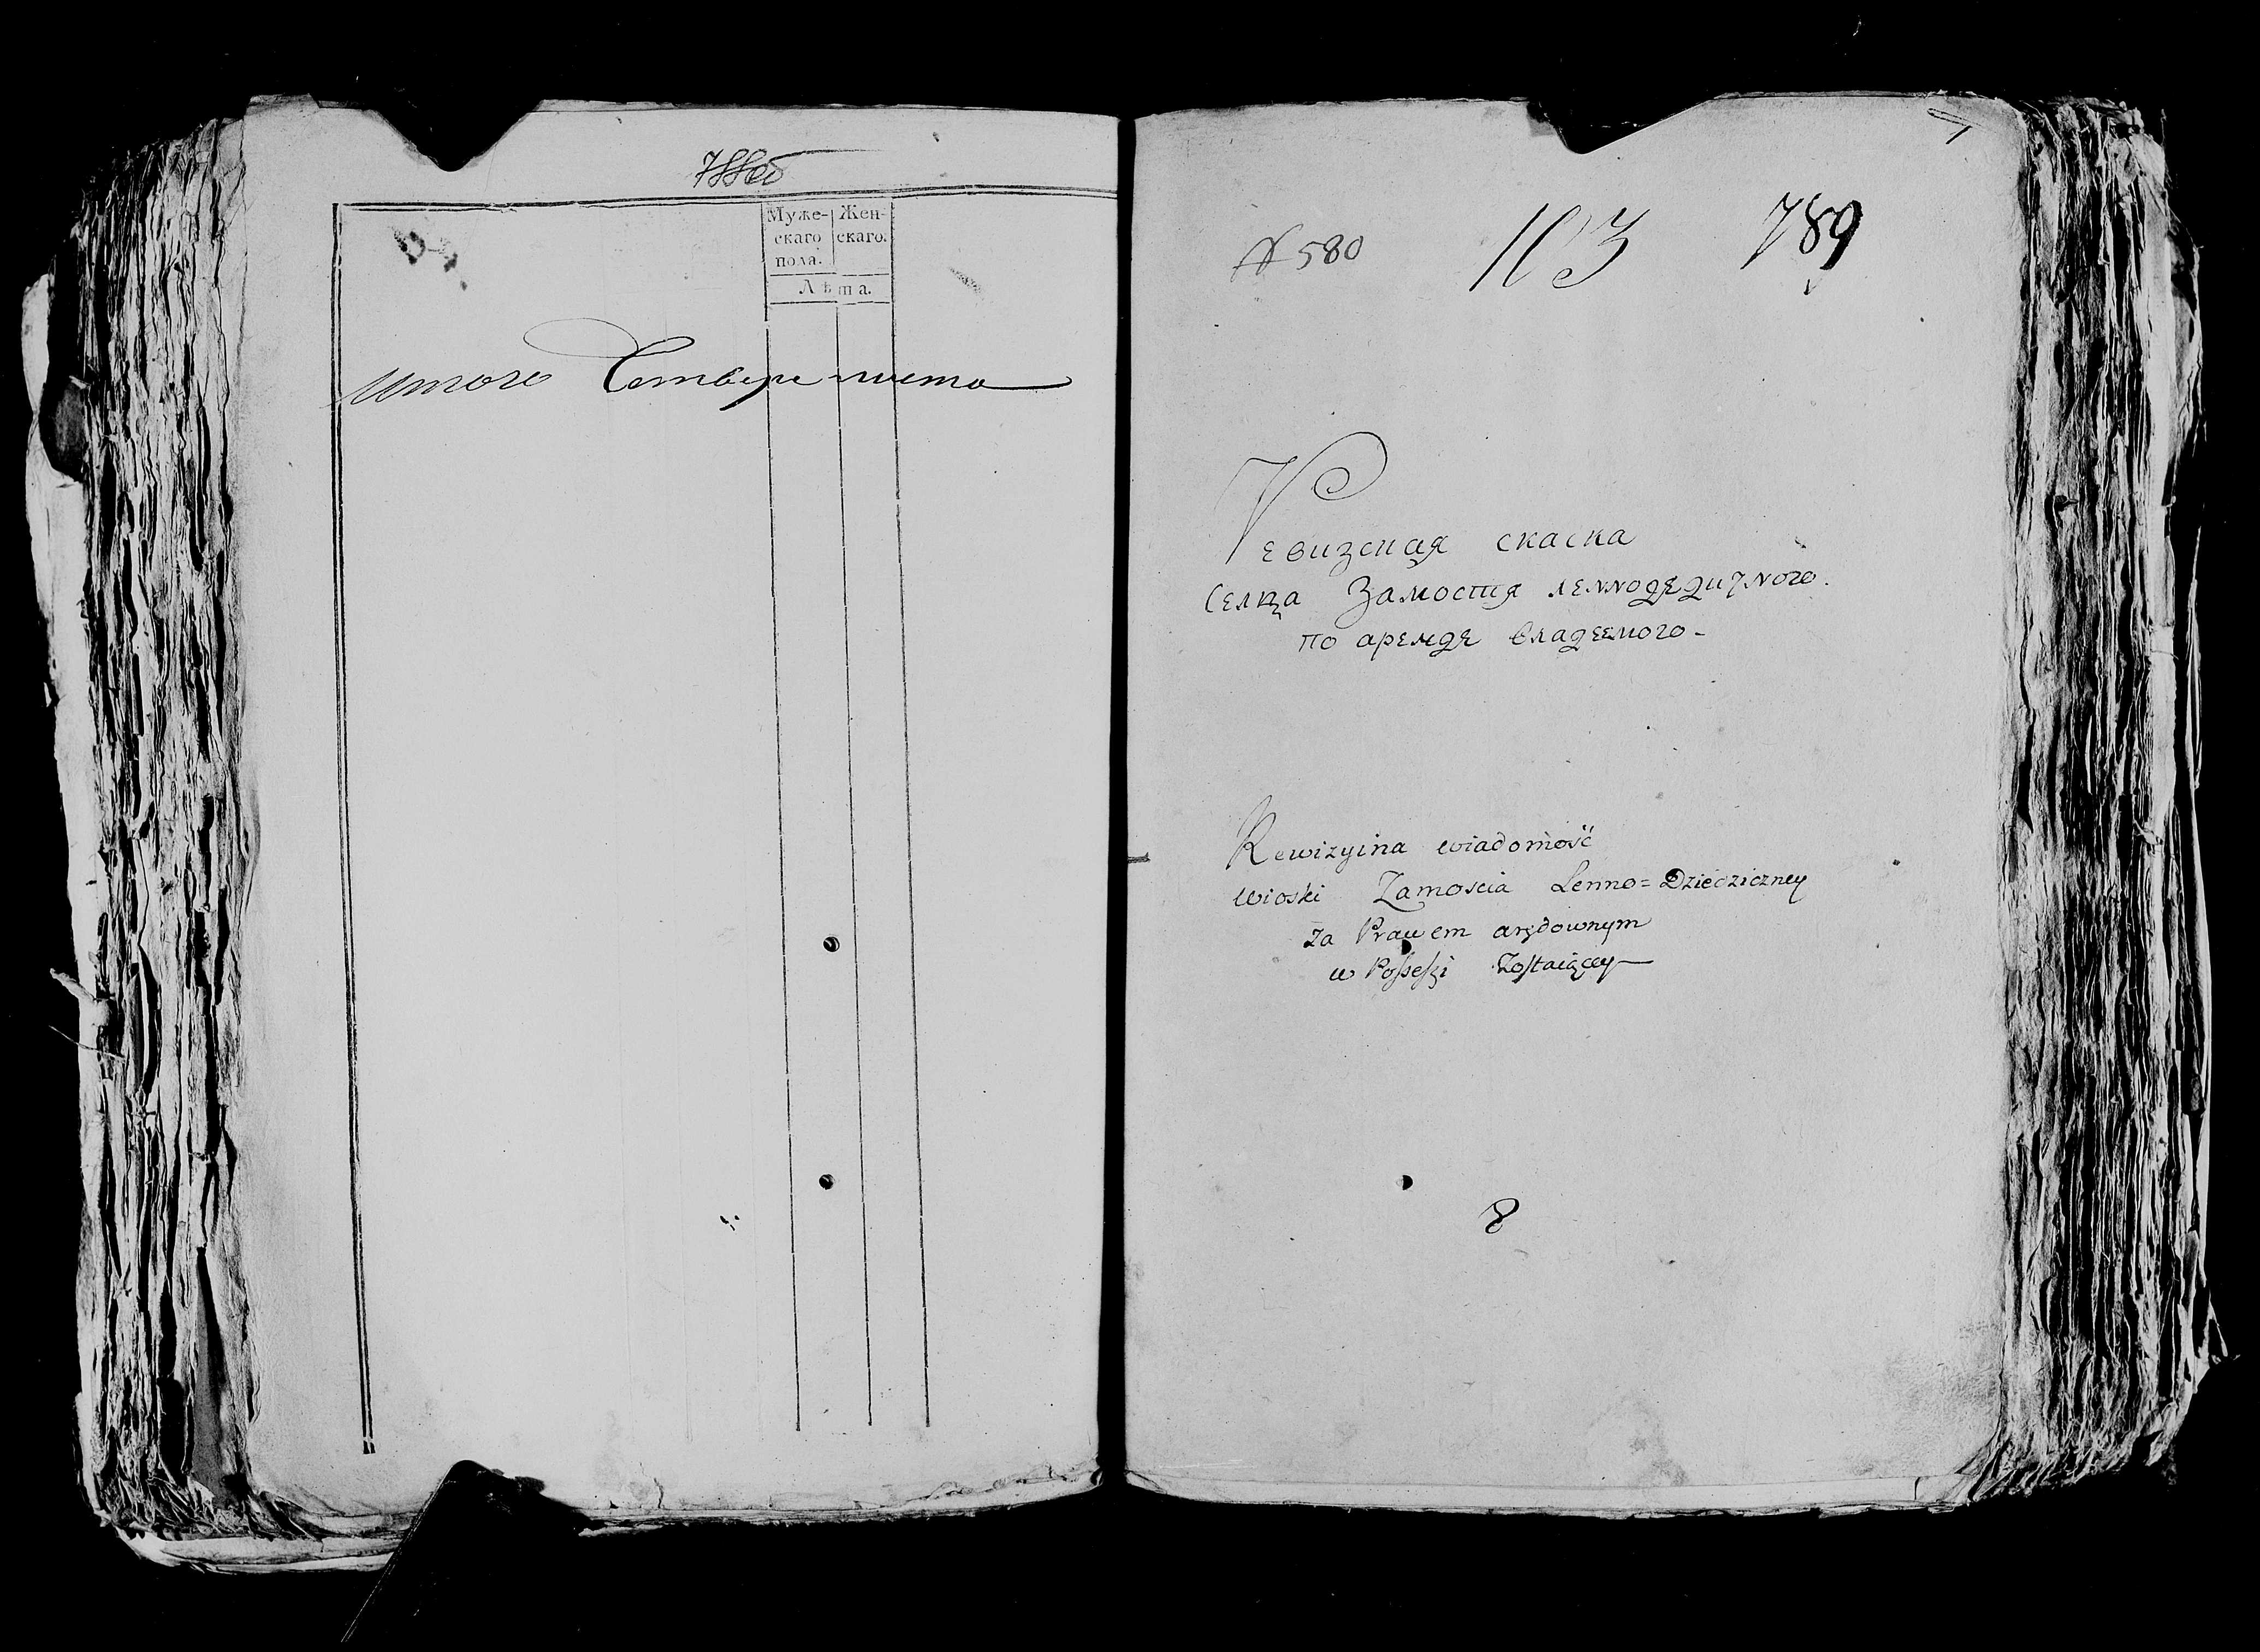 788об
Муже- Жен-
скаго скаго.
пола.
Лѣта.
итого Четвере листа
№ 580 103 789
Ревизсная скаска
Селца Замостя леннодедичного.
по аренде владеемого-
Rewizyina wiadomość
wioski Zamoscia Lenno=Dziedziczney
za Prawem arędownym
w Possessyi Zostaiącey
8